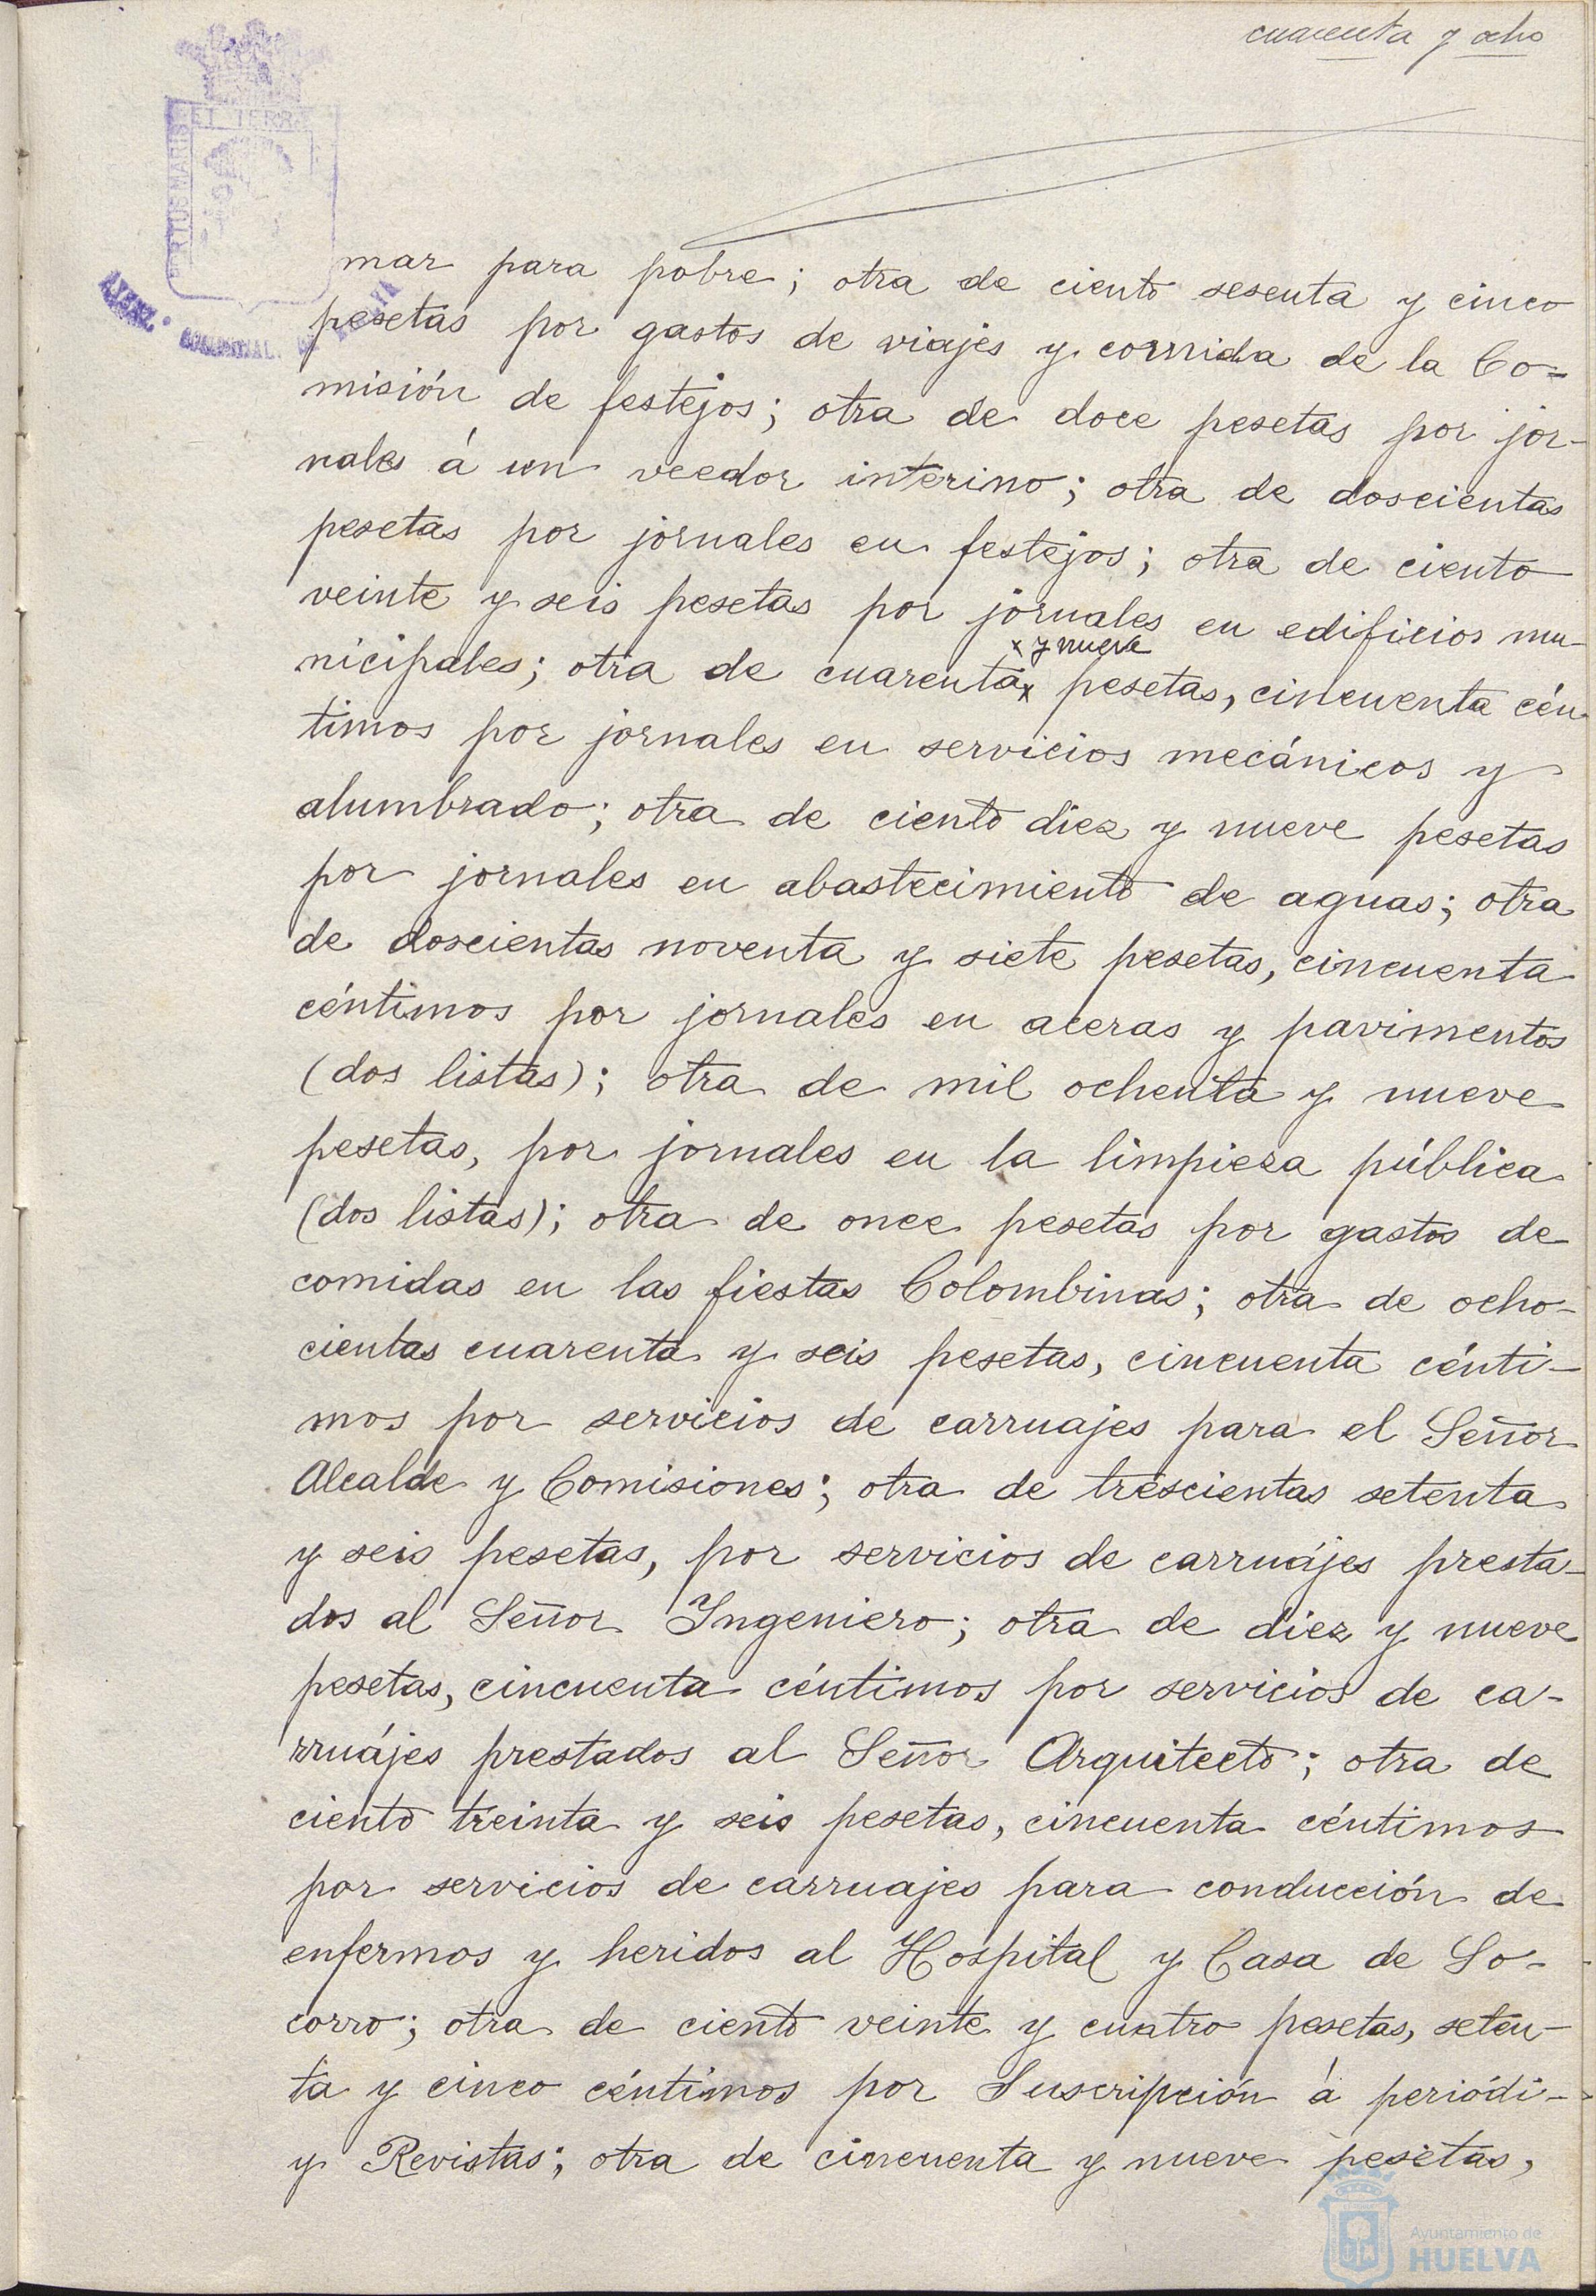 cuarenta y ocho
ET TERRÆ
PORTUS MARIS
mar para pobre; otra de ciento sesenta y cinco
pesetas por gastos de viajes y comida de la Co-
misión de festejos; otra de doce pesetas por jor-
nales á un veedor interino; otra de doscientas
pesetas por jornales en festejos; otra de ciento
veinte y seis pesetas por jornales en edificios mu-
x y nueve
nicipales; otra de cuarenta x pesetas, cincuenta cén-
timos por jornales en servicios mecánicos y
alumbrado; otra de ciento diez y nueve pesetas
por jornales en abastecimiento de aguas; otra
de doscientas noventa y siete pesetas, cincuenta
céntimos por jornales en aceras y pavimentos
(dos listas); otra de mil ochenta y nueve
pesetas, por jornales en la limpieza pública
(dos listas); otra de once pesetas por gastos de
comidas en las fiestas Colombinas; otra de ocho-
cientas cuarenta y seis pesetas, cincuenta cénti-
mos por servicios de carruajes para el Señor
Alcalde y Comisiones; otra de trescientas setenta
y seis pesetas, por servicios de carruájes presta-
dos al Señor Ingeniero; otra de diez y nueve
pesetas, cincuenta céntimos por servicios de ca-
rruájes prestados al Señor Arquitecto; otra de
ciento treinta y seis pesetas, cincuenta céntimos
por servicios de carruajes para conducción de
enfermos y heridos al Hospital y Casa de So-
corro; otra de ciento veinte y cuatro pesetas, seten-
ta y cinco céntimos por Suscripción á periódi-
y Revistas; otra de cincuenta y nueve pesetas,
Ayuntamiento de
HUELVA